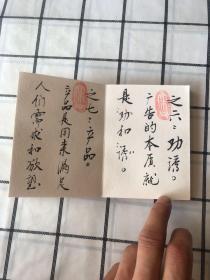 之六：功诱。
广告的本质就
是劝和诱。
之七：产品。
产品是用来满足
人们需求和欲望。